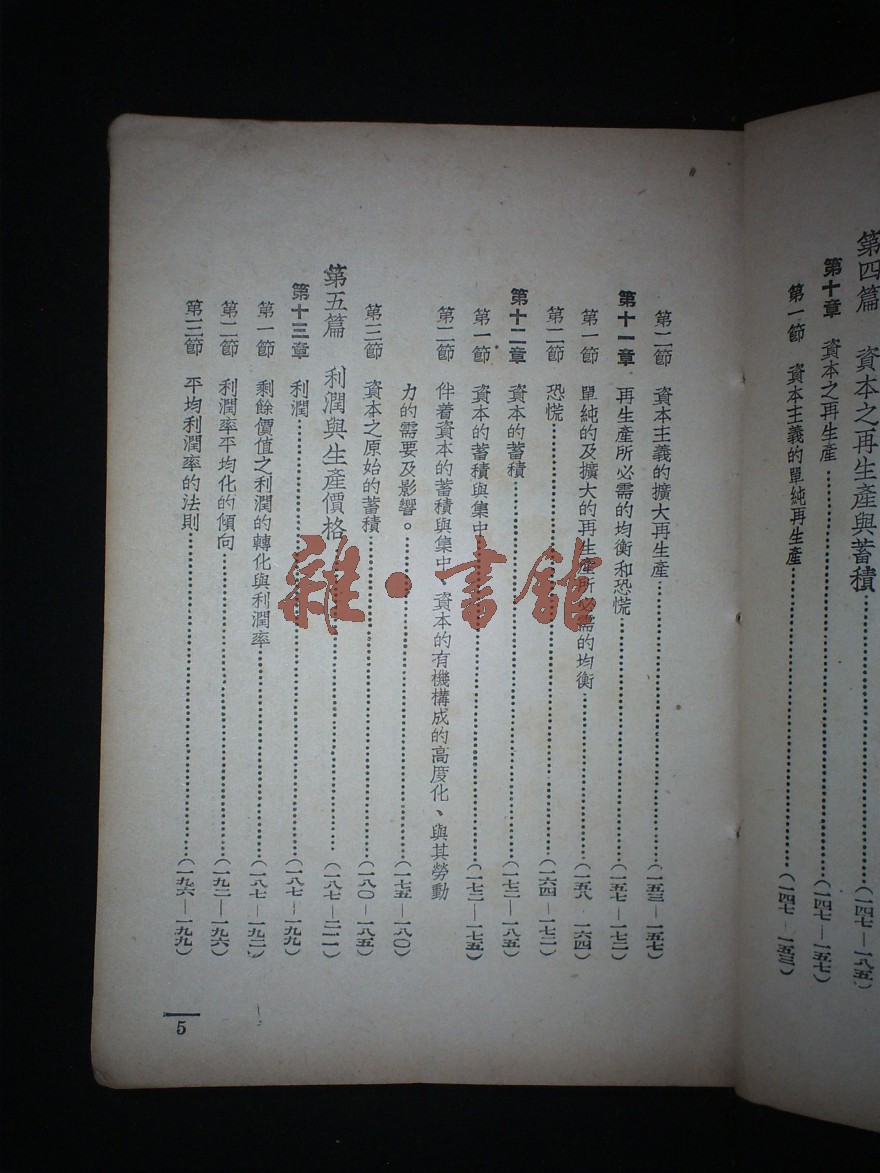 第四篇 資本之再生產與蓄積……(一四七—一八五)
第十章 資本之再生產……(一四七—一五七)
第一節 資本主義的單純再生產……(一四七—一五三)
第二節 資本主義的擴大再生產……(一五三—一五七)
第十一章 再生產所必需的均衡和恐慌……(一五七—一七二)
第一節 單純的及擴大的再生產所必需的均衡……(一五八—一六四)
第二節 恐慌……(一六四—一七二)
第十二章 資本的蓄積……(一七二—一八五)
第一節 資本的蓄積與集中……(一七二—一七五)
第二節 伴着資本的蓄積與集中、資本的有機構成的高度化、與其勞動
力的需要及影響。……(一七五—一八〇)
第三節 資本之原始的蓄積……(一八〇—一八五)
第五篇 利潤與生產價格……(一八七—二一一)
第十三章 利潤……(一八七—一九九)
第一節 剩餘價值之利潤的轉化與利潤率……(一八七—一九二)
第二節 利潤率平均化的傾向……(一九二—一九六)
第三節 平均利潤率的法則……(一九六—一九九)
5
雜·書館